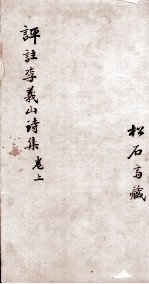 評註李義山詩集 卷上
松石齋藏